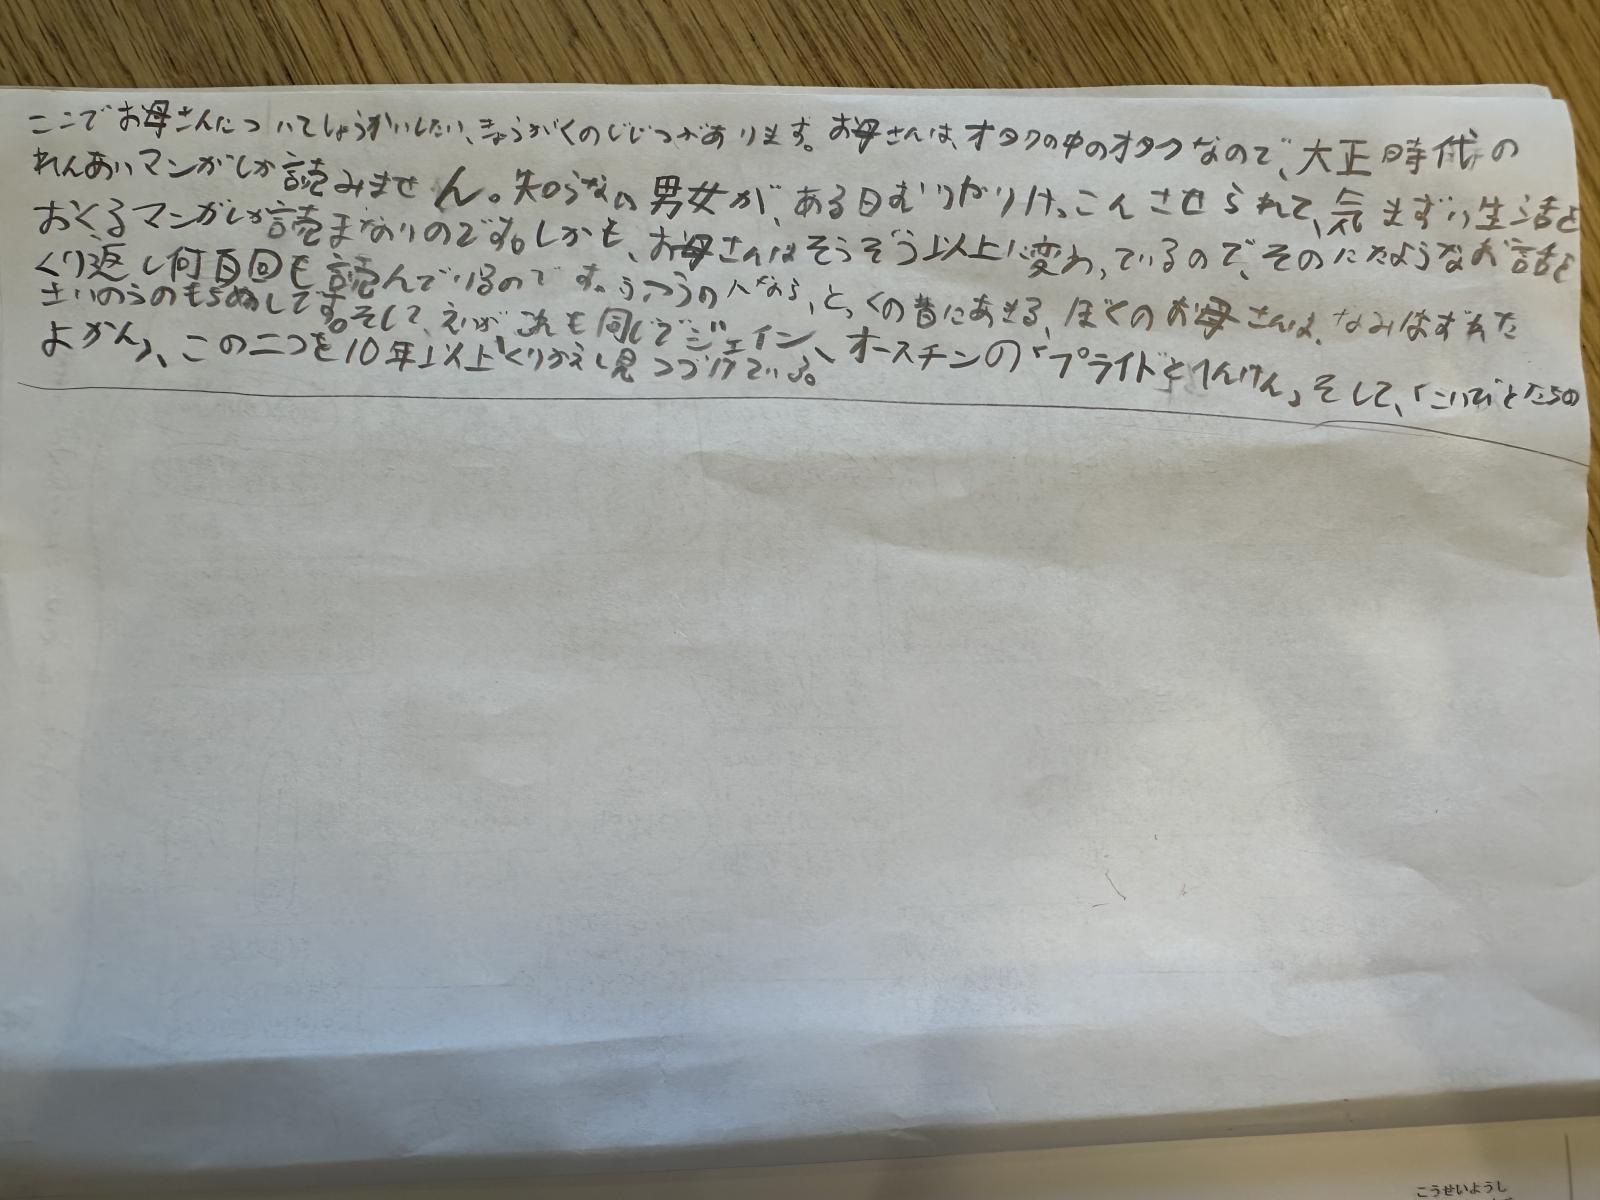 ここでお母さんについてしょうかいしたい、きょうがくのじじつがあります。お母さんは、オタクの中のオタクなので、大正時代の
れんあいマンガしか読みません。知らない男女が、ある日むりやりけっこんさせられて、気まずい生活を
おくるマンガしか読まないのです。しかも、お母さんはそうぞう以上に変わっているので、そのにたようなお話を
くり返し何百回も読んでいるのです。ふつうの人なら、とっくの昔にあきる、ぼくのお母さんは、なみはずれた
さいのうのもちぬしです。そして、えいがこれも同じでジェイン、オースチンの「プライドとへんけん」そして、「こいびとたちの
よかん」、この二つを10年以上くりかえし見つづけている。
こうせいようし